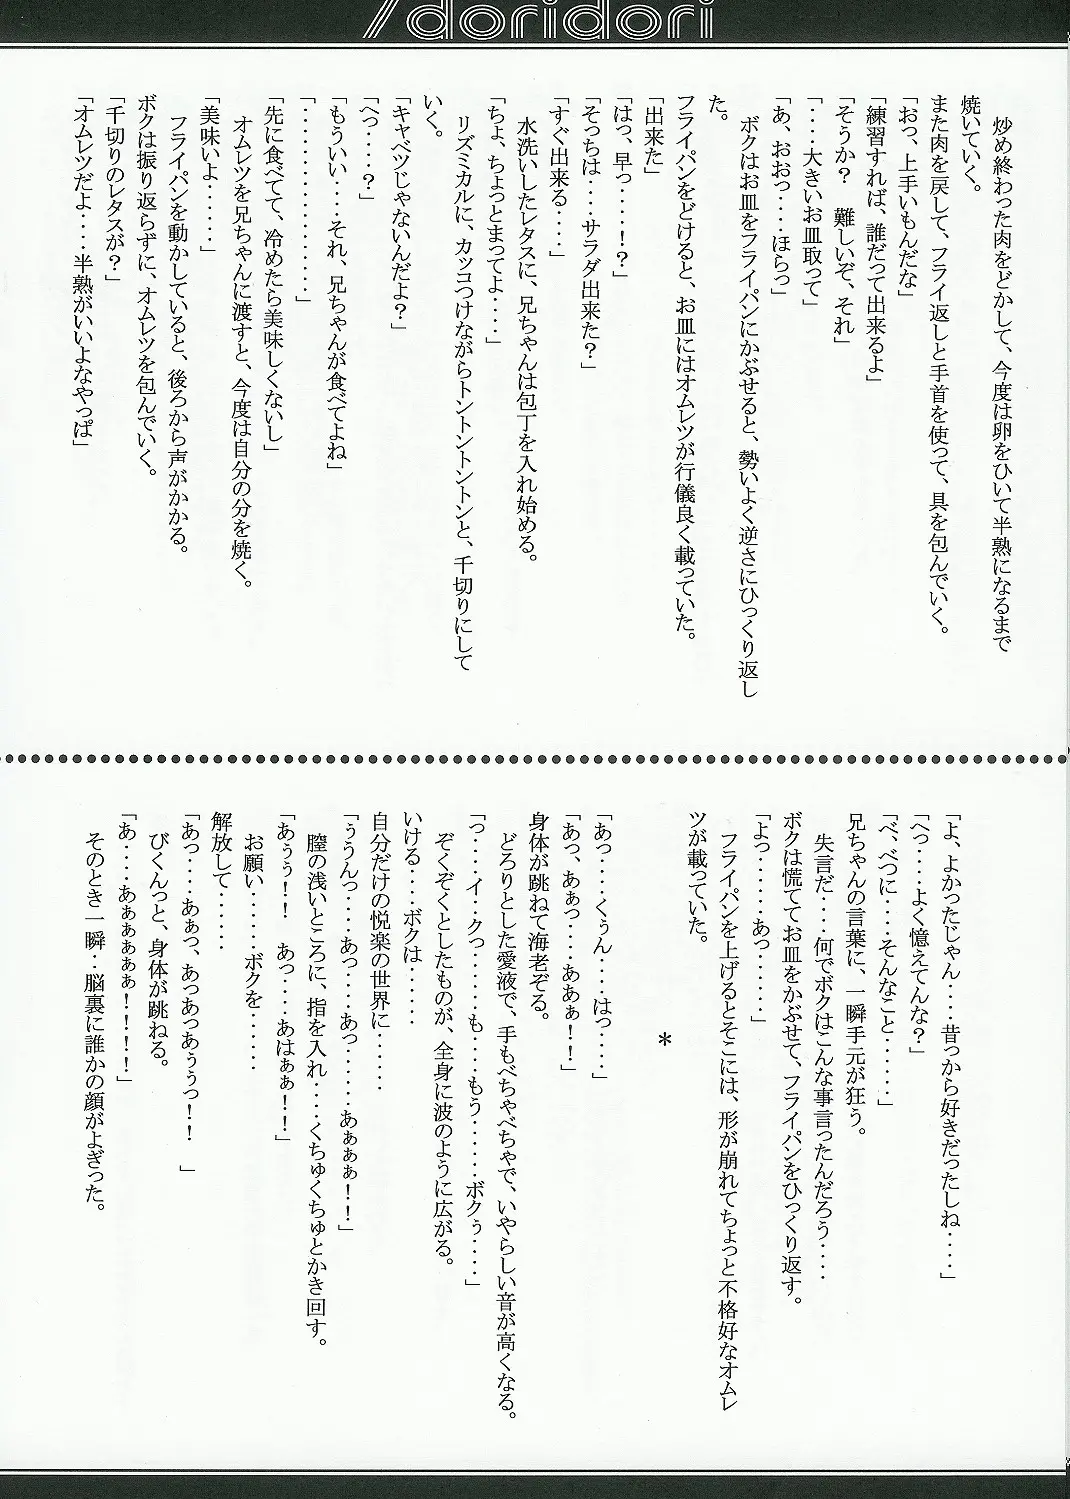 /doridori
炒め終わった肉をどかして、今度は卵をひいて半熟になるまで
焼いていく。
また肉を戻して、フライ返しと手首を使って、具を包んでいく。
「おっ、上手いもんだな」
「練習すれば、誰だって出来るよ」
「そうか？　難しいぞ、それ」
「‥‥大きいお皿取って」
「あ、おおっ‥‥ほらっ」
ボクはお皿をフライパンにかぶせると、勢いよく逆さにひっくり返し
た。
フライパンをどけると、お皿にはオムレツが行儀良く載っていた。
「出来た」
「はっ、早っ‥‥！？」
「そっちは‥‥サラダ出来た？」
「すぐ出来る‥‥」
水洗いしたレタスに、兄ちゃんは包丁を入れ始める。
「ちょ、ちょっとまってよ‥‥」
リズミカルに、カッコつけながらトントントントンと、千切りにして
いく。
「キャベツじゃないんだよ？」
「へっ‥‥？」
「もういい‥‥それ、兄ちゃんが食べてよね」
「‥‥‥‥‥‥‥‥‥」
「先に食べてて、冷めたら美味しくないし」
オムレツを兄ちゃんに渡すと、今度は自分の分を焼く。
「美味いよ‥‥‥」
フライパンを動かしていると、後ろから声がかかる。
ボクは振り返らずに、オムレツを包んでいく。
「千切りのレタスが？」
「オムレツだよ‥‥半熟がいいよなやっぱ」
「よ、よかったじゃん‥‥昔っから好きだったしね‥‥」
「へっ‥‥よく憶えてんな？」
「べ、べつに‥‥そんなこと‥‥‥」
兄ちゃんの言葉に、一瞬手元が狂う。
失言だ‥‥何でボクはこんな事言ったんだろう‥‥
ボクは慌ててお皿をかぶせて、フライパンをひっくり返す。
「よっ‥‥‥あっ‥‥‥」
フライパンを上げるとそこには、形が崩れてちょっと不格好なオムレ
ツが載っていた。
＊
「あっ‥‥くぅん‥‥はっ‥‥」
「あっ、あぁっ‥‥ああぁ！！」
身体が跳ねて海老ぞる。
どろりとした愛液で、手もべちゃべちゃで、いやらしい音が高くなる。
「っ‥‥イ‥クっ‥‥‥も‥‥もう‥‥‥ボクぅ‥‥」
ぞくぞくとしたものが、全身に波のように広がる。
いける‥‥ボクは‥‥‥
自分だけの悦楽の世界に‥‥‥
「ぅうんっ‥‥あっ‥‥あっ‥‥‥あぁぁぁ！！」
膣の浅いところに、指を入れ‥‥くちゅくちゅとかき回す。
「あぅぅ！！　あっ‥‥あはぁぁ！！」
お願い‥‥‥ボクを‥‥‥
解放して‥‥‥
「あっ‥‥あぁっ、あっあっあぅぅっ！！　」
びくんっと、身体が跳ねる。
「あ‥‥あぁぁぁぁぁ！！！！」
そのとき一瞬‥脳裏に誰かの顔がよぎった。